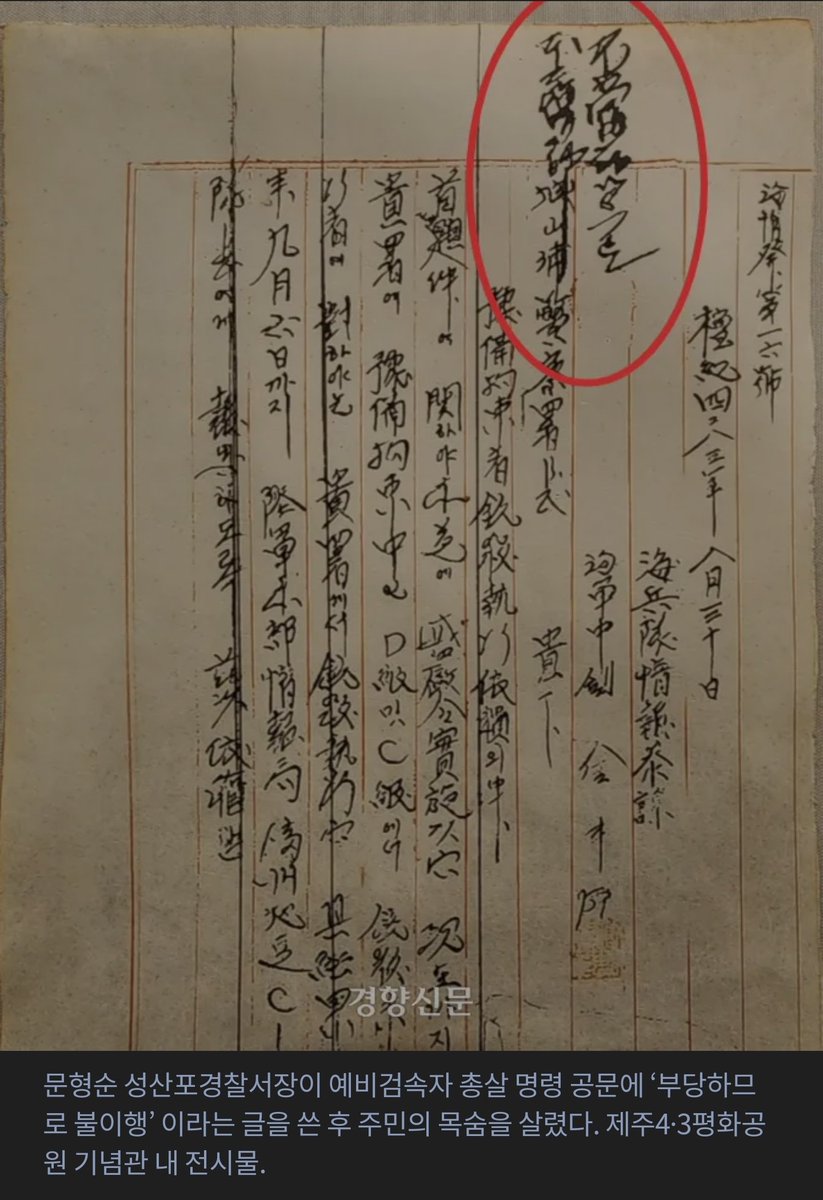 海情發第一六號
檀紀四二八三年 八月三十日
海兵隊情報參謀
海軍中領 金斗
不當하므로
不履行
城山浦警察署長 貴下
豫備拘束者銃殺執行依賴의件
首題件에 關하야 本道에 戒嚴令實施以 現在까지
貴署에 豫備拘束中인 D級및C級에서 銃殺
行者에 對하야는 貴署에서 銃殺執行 其結果
來九月六日까지 陸軍本部情報局 濟州地區C
隊長에게 報告하도록 依賴함
경향신문
문형순 성산포경찰서장이 예비검속자 총살 명령 공문에 ‘부당하므
로 불이행’ 이라는 글을 쓴 후 주민의 목숨을 살렸다. 제주4·3평화공
원 기념관 내 전시물.